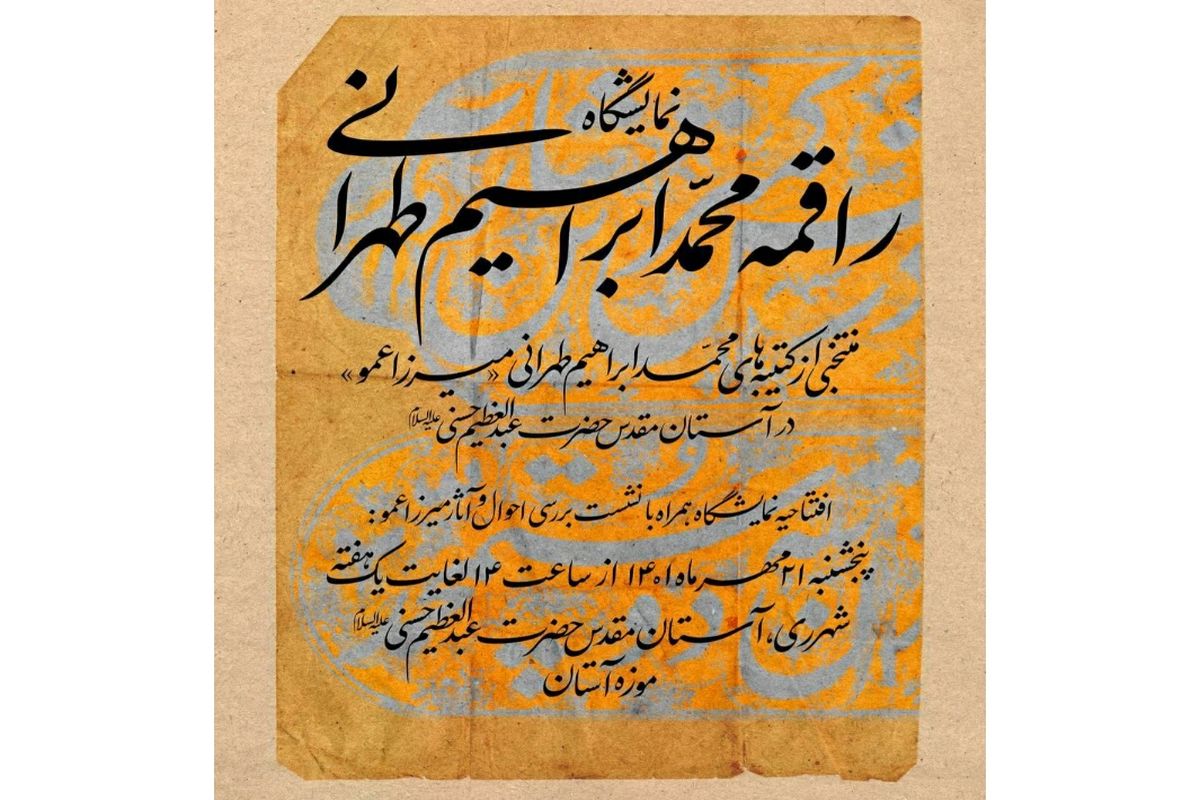 نمایشگاه
راقمه محمّد ابراهیم طهرانی
منتخبی از کتیبه های محمّد ابراهیم طهرانی «میرزا عمو»
در آستان مقدس حضرت عبدالعظیم حسنی علیه السلام
افتتاحیه نمایشگاه همراه با نشست بررسی احوال و آثار میرزا عمو:
پنجشنبه ۲۱ مهر ماه ۱۴۰۱ از ساعت ۱۴ لغایت یک هفته
شهر ری، آستان مقدس حضرت عبدالعظیم حسنی علیه السلام
موزه آستان